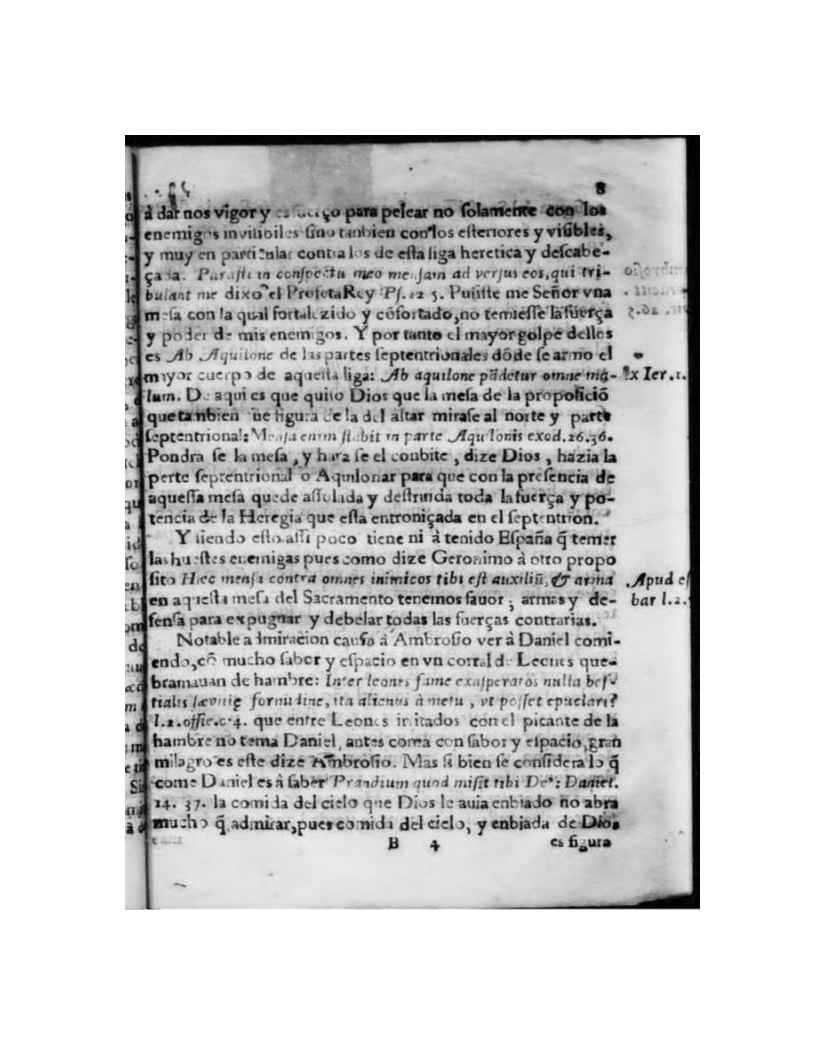 8
à dar nos vigor y ço para pelear no ſolamente con los
enemigos inviſibiles ſino tanbien con los eſteriores y viſibles,
y muy en particular contra los de eſta liga heretica y deſcabe-
çada. Paraſti in conſpectu meo menſam ad verſus eos, qui tri-
bulant me dixo el Profeta Rey Pſ. 22 5. Puſiſte me Señor vna
meſa con la qual fortalezido y cõfortado, no temieſſe la fuerça
y poder de mis enemigos. Y por tanto el mayor golpe dellos
es Ab Aquilone de las partes ſeptentrionales dõde ſe armo el
mayor cuerpo de aqueſta liga: Ab aquilone pãdetur omne ma- Ier. 1.
lum. De aqui es que quiſo Dios que la meſa de la propoſiciõ
que tanbien fue figura de la del altar miraſe al norte y parte
ſeptentrional: Menſa enim ſtabit in parte Aquilonis exod. 26. 36.
Pondra ſe la meſa, y hara ſe el conbite, dize Dios, hazia la
perte ſeptentrional o Aquilonar para que con la preſencia de
aqueſſa meſa quede aſſolada y deſtruida toda la fuerça y po-
tencia de la Heregia que eſta entroniçada en el ſeptentrion.
Y ſiendo eſto aſſi poco tiene ni à tenido Eſpaña q̃ temer
las hueſtes enemigas pues como dize Geronimo à otro propo
ſito Hæc menſa contra omnes inimicos tibi eſt auxiliũ, & arma Apud eſ
en aqueſta meſa del Sacramento tenemos fauor, armas y de- bar l. 2.
fenſa para expugnar y debelar todas las fuerças contrarias.
Notable admiracion cauſo à Ambroſio ver à Daniel comi-
endo, cõ mucho ſabor y eſpacio en vn corral de Leones que
bramauan de hambre: Inter leones fame exaſperatos nulla beſ-
tialis ſævitię formidine, ita alienus à metu, vt poſſet epulari?
l. 2. offic. c. 4. que entre Leones irritados con el picante de la
hambre no tema Daniel, antes coma con ſabor y eſpacio, gran
milagro es eſte dize Ambroſio. Mas ſi bien ſe conſidera lo q̃
come Daniel es à ſaber Prandium quod miſit tibi De⁹: Daniel.
14. 37. la comida del cielo que Dios le auia enbiado no abra
mucho q̃ admirar, pues comida del cielo, y enbiada de Dios
B 4 es figura